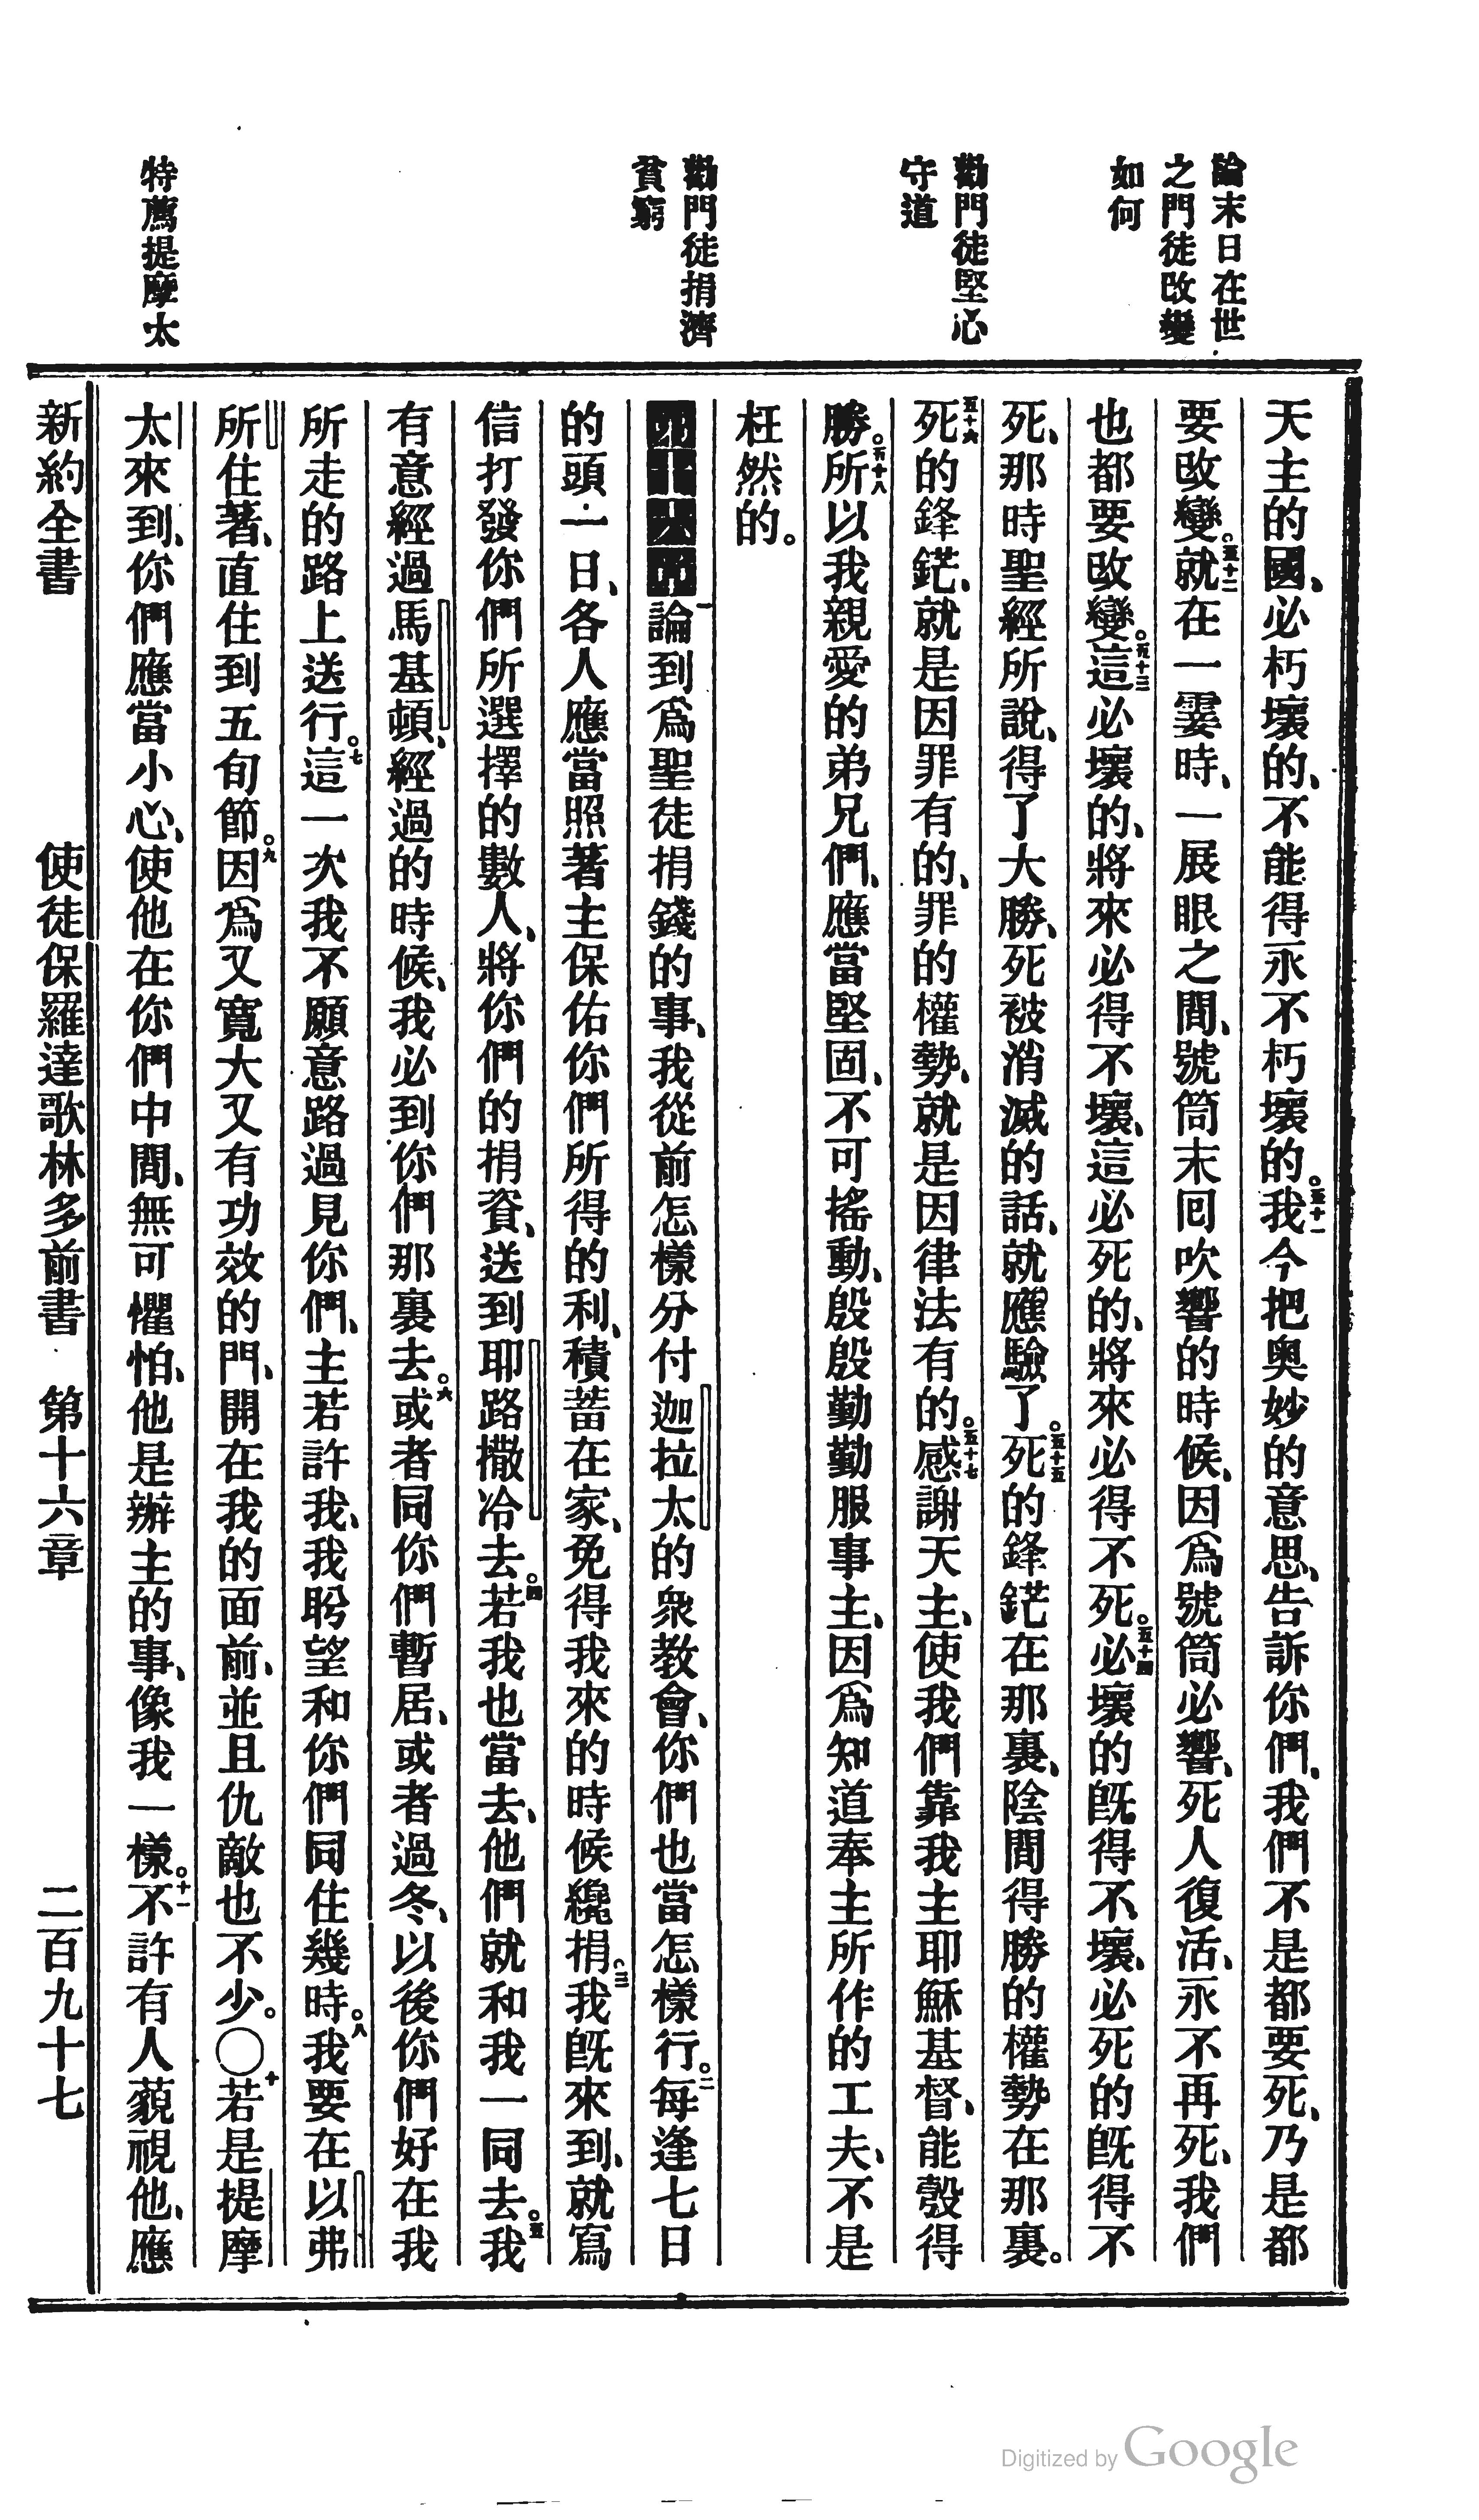 論末日在世
之門徒改變
如何
勸門徒堅心
守道
勸門徒捐濟
貧窮
特薦提摩太
天主的國、必朽壞的、不能得永不朽壞的。五十一我今把奧妙的意思、告訴你們、我們不是都要死、乃是都
要改變。五十二就在一霎時、一展眼之間、號筒末回吹響的時候、因爲號筒必響、死人復活、永不再死、我們
也都要改變。五十三這必壞的、將來必得不壞、這必死的、將來必得不死。五十四必壞的旣得不壞、必死的旣得不
死、那時聖經所說、得了大勝、死被消滅的話、就應驗了。五十五死的鋒鋩在那裏、陰間得勝的權勢在那裏。
五十六死的鋒鋩、就是因罪有的、罪的權勢、就是因律法有的。五十七感謝天主、使我們靠我主耶穌基督、能彀得
勝。五十八所以我親愛的弟兄們、應當堅固、不可搖動、殷殷勤勤服事主、因爲知道奉主所作的工夫、不是
枉然的。
第十六章一論到爲聖徒捐錢的事、我從前怎樣分付迦拉太的衆教會、你們也當怎樣行。二每逢七日
的頭一日、各人應當照著主保佑你們所得的利、積蓄在家、免得我來的時候纔捐。三我旣來到、就寫
信打發你們所選擇的數人、將你們的捐資、送到耶路撒冷去。四若我也當去、他們就和我一同去。五我
有意經過馬基頓、經過的時候、我必到你們那裏去。六或者同你們暫居、或者過冬、以後你們好在我
所走的路上送行。七這一次我不願意路過見你們、主若許我、我盼望和你們同住幾時。八我要在以弗
所住著、直住到五旬節。九因爲又寬大又有功效的門、開在我的面前、並且仇敵也不少。〇十若是提摩
太來到、你們應當小心、使他在你們中間、無可懼怕、他是辦主的事、像我一樣。十一不許有人藐視他、應
新約全書 使徒保羅達歌林多前書 第十六章 二百九十七
Digitized by Google